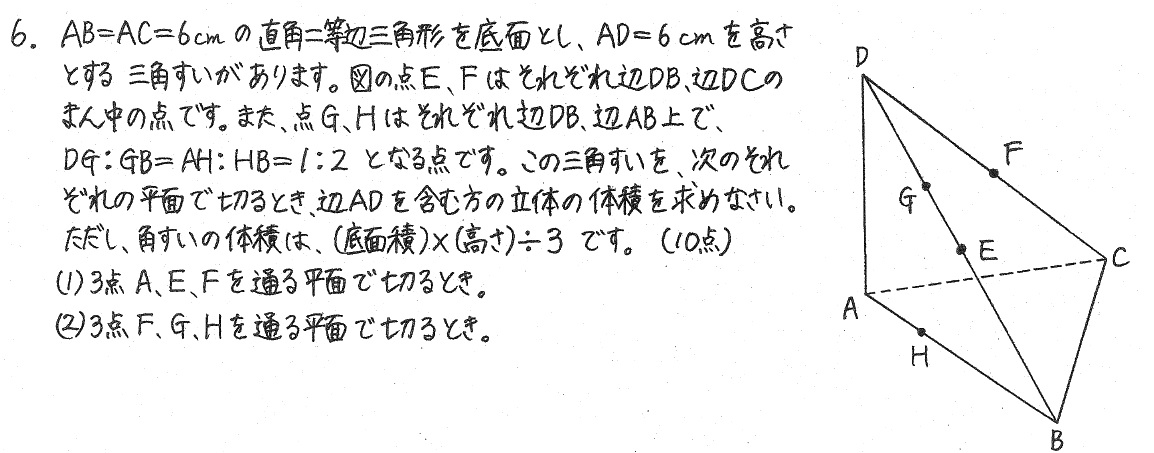 6. AB=AC=6cmの直角二等辺三角形を底面とし、AD=6cmを高さ
とする三角すいがあります。図の点E、Fはそれぞれ辺DB、辺DCの
まん中の点です。また、点G、Hはそれぞれ辺DB、辺AB上で、
DG:GB=AH:HB=1:2となる点です。この三角すいを、次のそれ
ぞれの平面で切るとき、辺ADを含む方の立体の体積を求めなさい。
ただし、角すいの体積は、(底面積)×(高さ)÷3です。(10点)
(1)3点A、E、Fを通る平面で切るとき。
(2)3点F、G、Hを通る平面で切るとき。
D
F
G
E
C
A
H
B